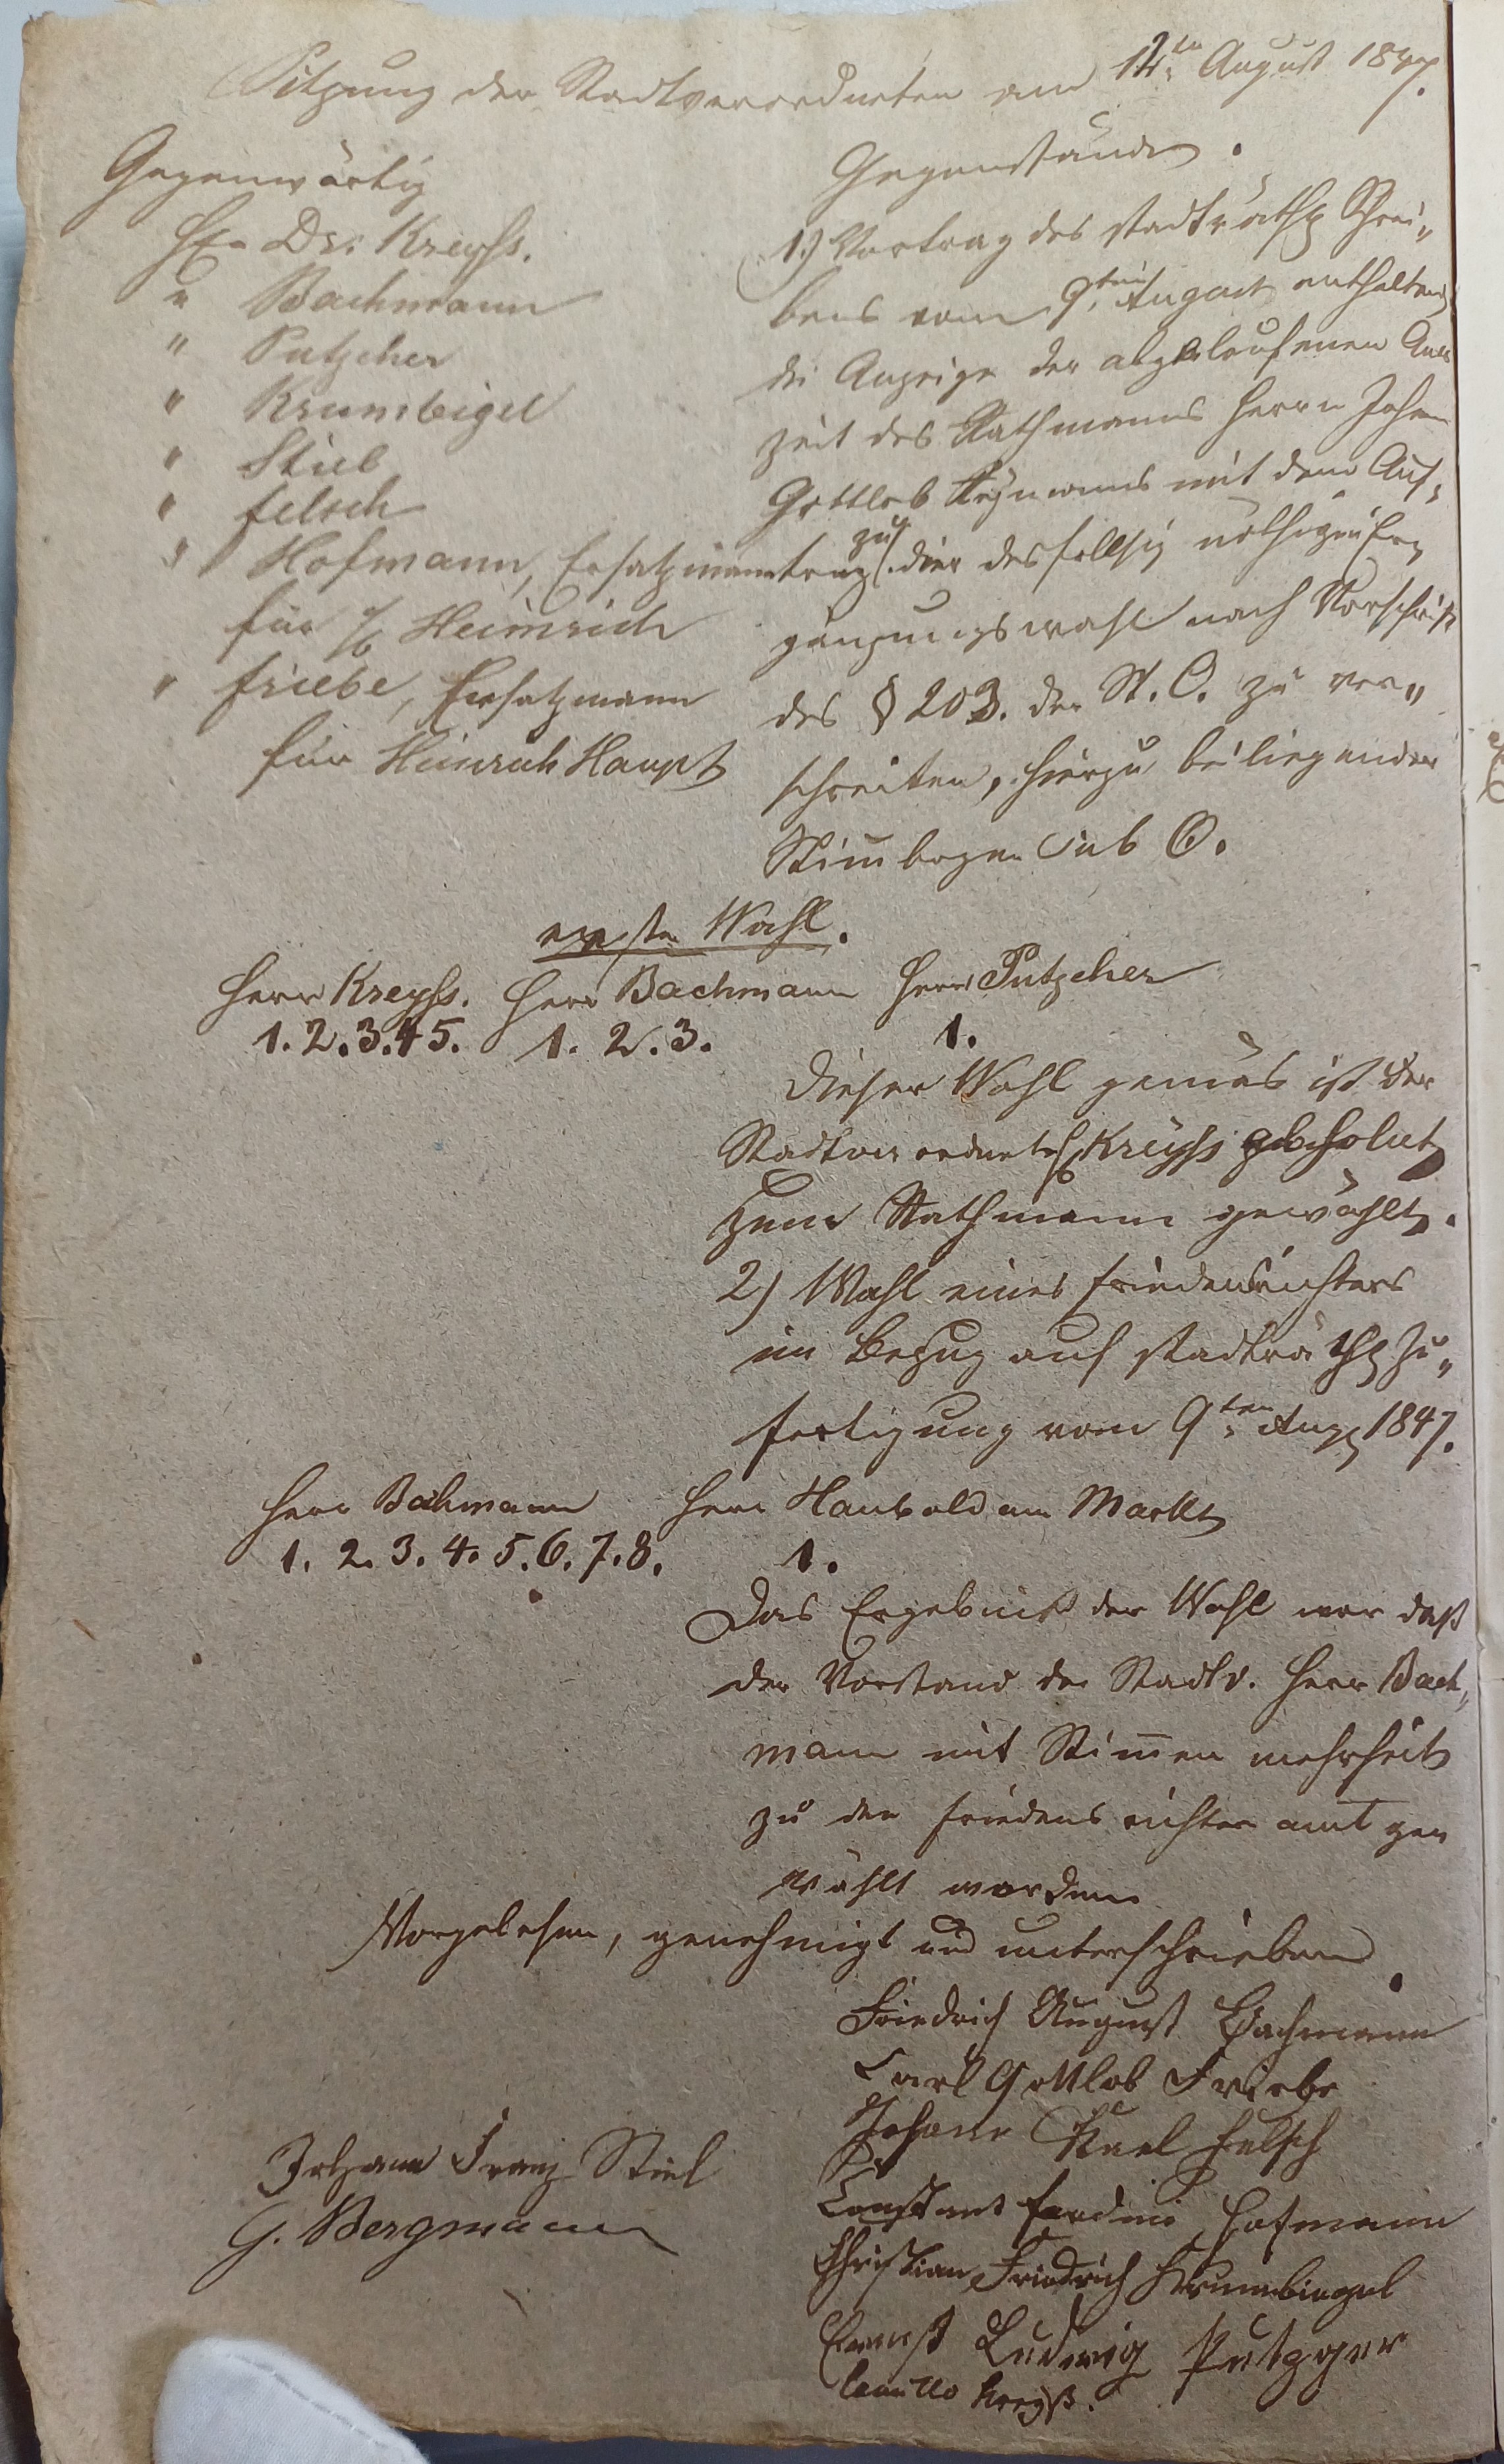 Sitzung der Stadtverordneten am 12ten August 1847.
Gegenwärtig
Hr. Dr. Kreyßs.
" Bachmann
" Putzcher
" Krumbigel
" Stiel
" Felsch
" Hofmann, Ersatzmann
für H. Heimrich
" Friebe, Ersatzmann
für Heinrich Haupt
Gegenstände.
1.) Vortrag des stadträthl. Schrei„
bens vom 9ten August enthaltend
die Anzeige der abgelaufenen Amts
zeit des Rathmanns Herrn Johann
Gottlob mit dem Auf„
trag zu der desfallsig nöthigen Er„
gänzungswahl nach Vorschrift
des § 203. der St. O. zu ver„
schreiten, hierzu beiliegender
Stimmbogen sub O.
erste Wahl.
Herr Kreyßs. Herr Bachmann Herr Putzcher
1. 2. 3. 4 5. 1. 2. 3. 1.
Dieser Wahl gemäs ist der
Stadtverordnete H. Kreyßs absolut
zum Rathmann gewählt.
2) Wahl eines Friedensrichters
in Bezug auf stadträthl. Zu„
fertigung vom 9ten Aug. 1847.
Herr Bachmann Herr Haubold am Markt
1. 2. 3. 4. 5. 6. 7. 8. 1.
Das Ergebniß der Wahl war daß
der Vorstand der Stadtv. Herr Bach„
mann mit Stimmen mehrheit
zu dem Friedensrichter amt ge„
wählt worden
Vorgelesen, genehmigt und unterschrieben.
Friedrich August Bachmann
Carl Gottlob Friebe
Johann Karl Felsch
Constant Ferdin. Hofmann
Christian Friedrich Krumbiegel
Ernst Ludwig Putzger
Camillo Kreyß.
Johann Franz Stiel
G. Bergmann